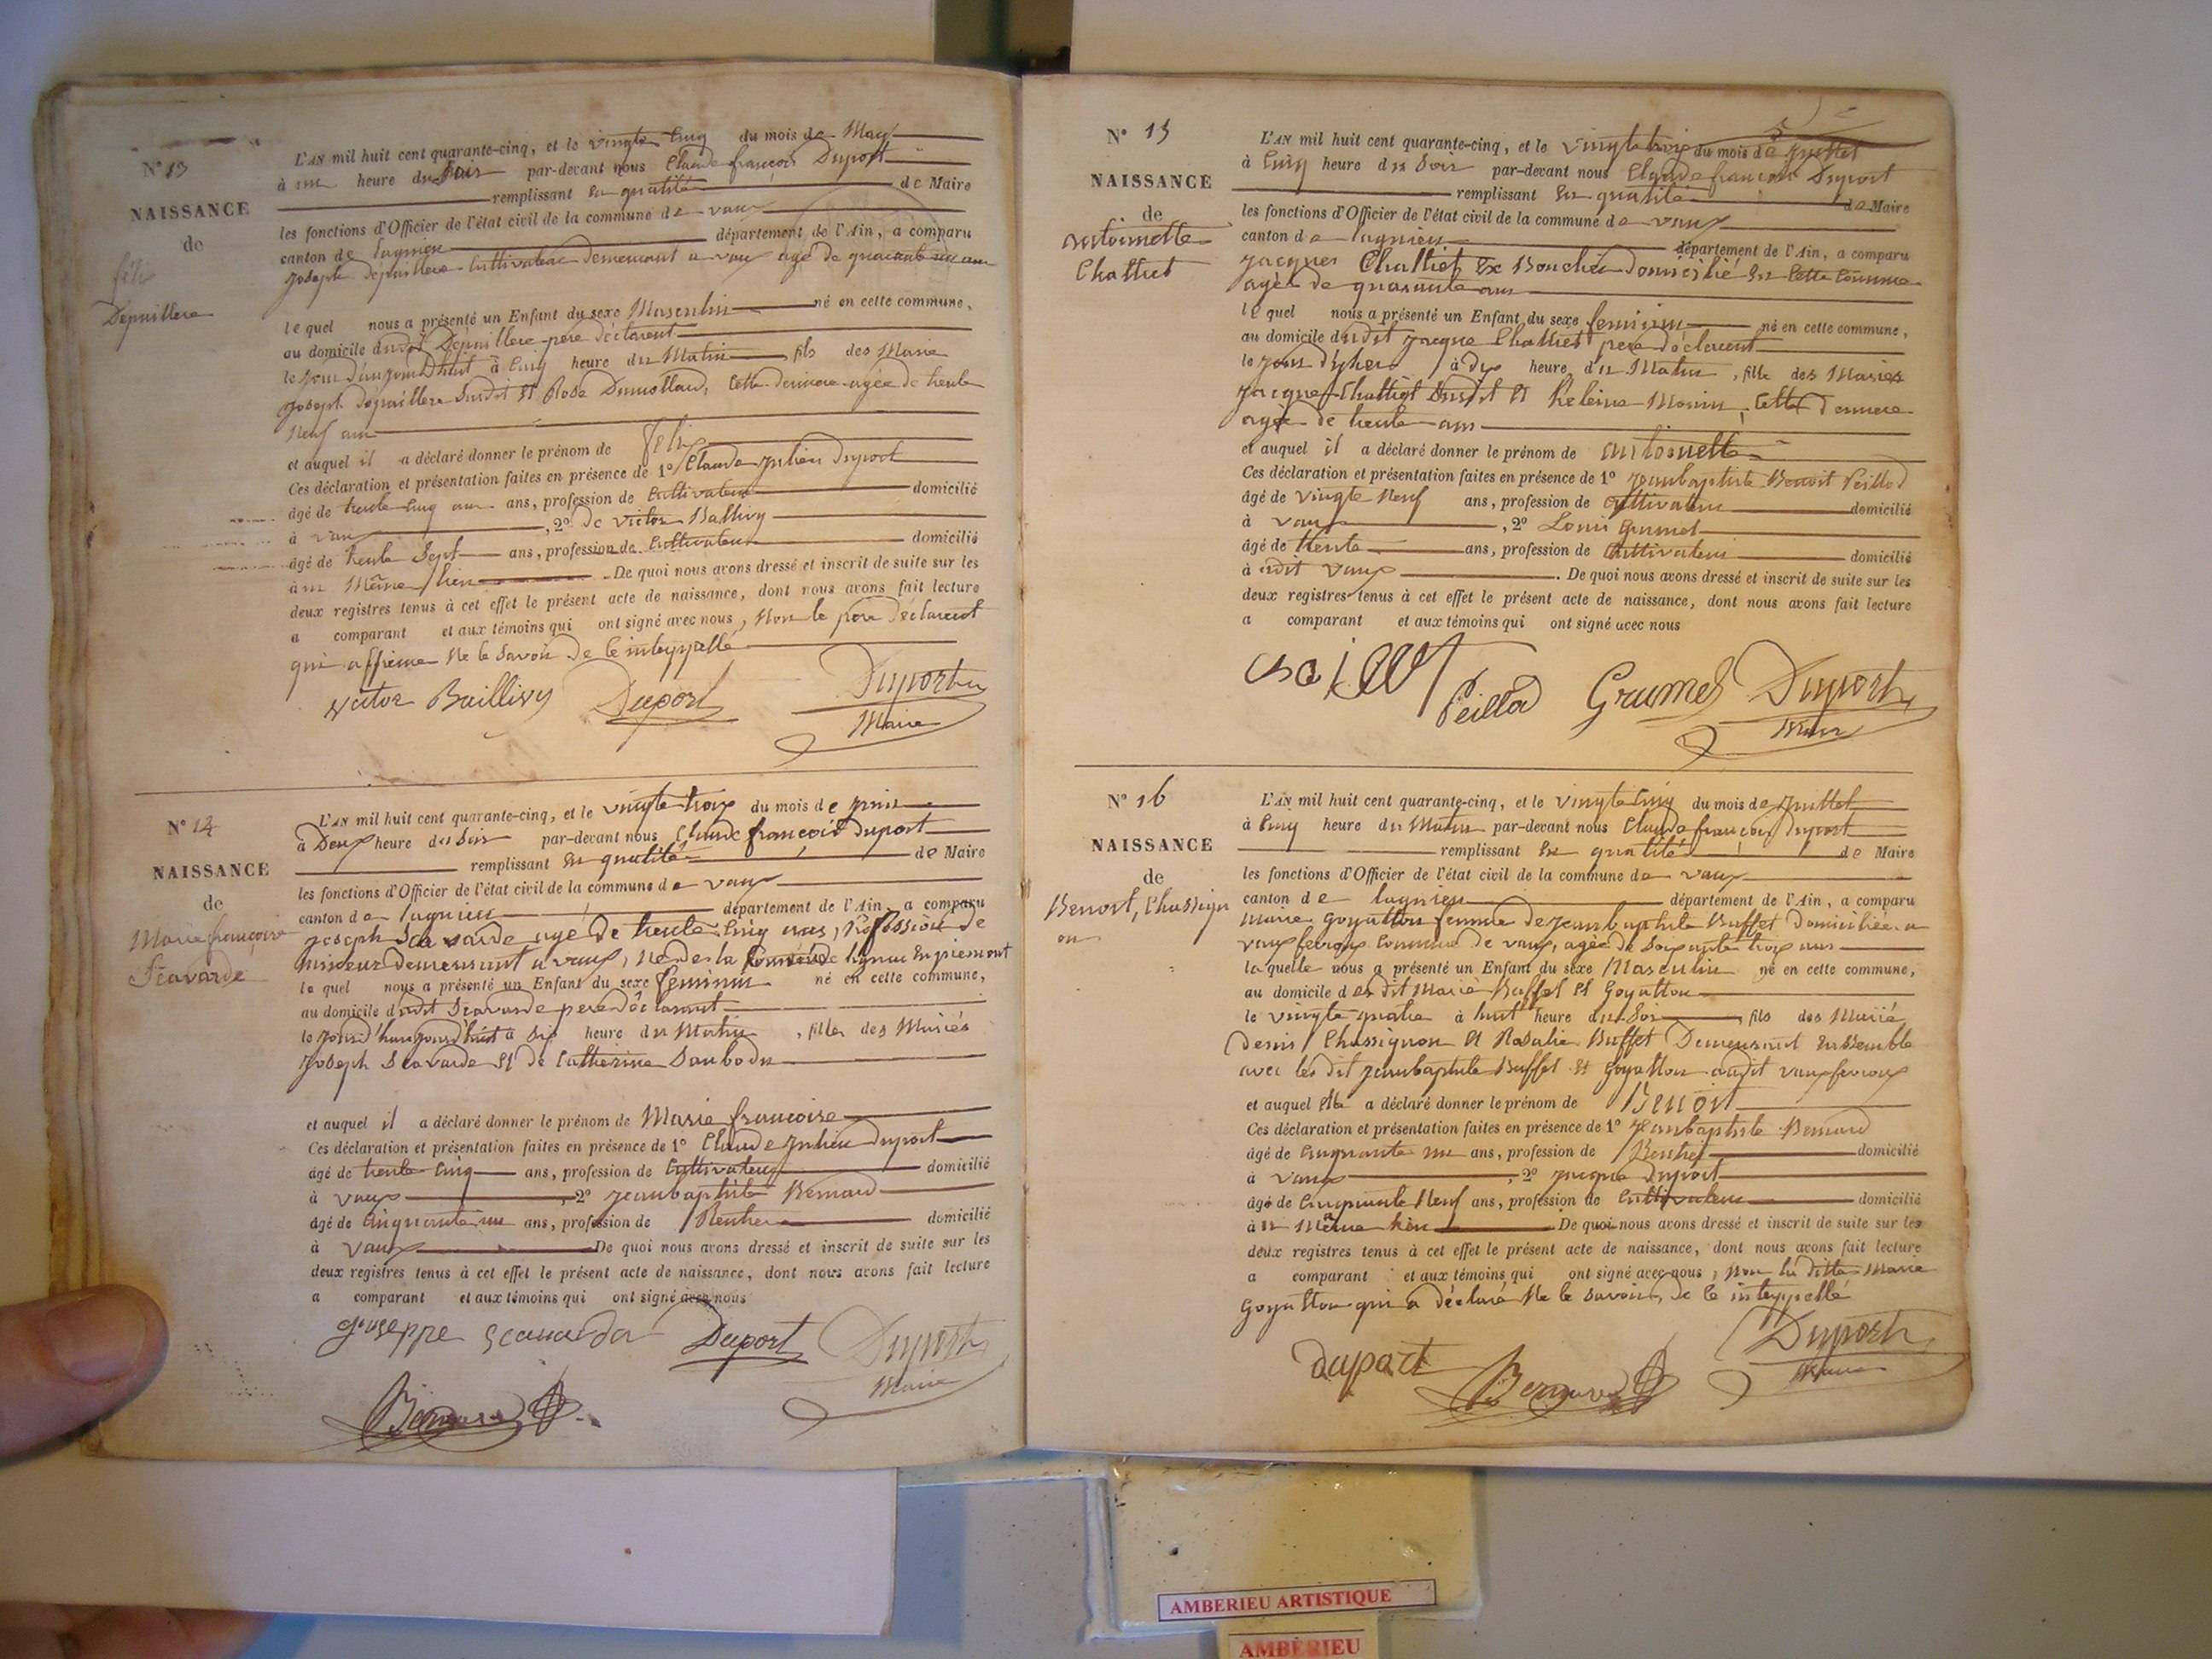 N° 13
NAISSANCE
de
felix
Depaillere
L'AN mil huit cent quarante-cinq, et le vingte Cinq du mois de May
à une heure du Soir par-devant nous Claude françois Duport
remplissant En qualité de Maire
les fonctions d'Officier de l'état civil de la commune de vaux
canton de lagnieu département de l'Ain, a comparu
joseph depaillere Cultivateur demeurant a vaux agé de quarante un ans
lequel nous a présenté un Enfant du sexe Masculin né en cette commune,
au domicile dudit Depaillere pere déclarent
le jour d'aujourdhuit à Cinq heure du Matin fils des Marie
joseph depaillere Susdit Et Rose Dumollard, Cette derniere agée de trente
Neuf ans
et auquel il a déclaré donner le prénom de felix
Ces déclaration et présentation faites en présence de 1° Claude julien Duport
âgé de trente Cinq ans ans, profession de Cultivateur domicilié
à vaux, 2° de victor Ballivy
âgé de trente Sept ans, profession de Cultivateur domicilié
à u Même lieu. De quoi nous avons dressé et inscrit de suite sur les
deux registres tenus à cet effet le présent acte de naissance, dont nous avons fait lecture
a comparant et aux témoins qui ont signé avec nous, Non le pere declarent
qui affirme Ne le Savoir de ce inteppellé
victor Baillivy Duport Duport
Maire
N° 14
NAISSANCE
de
Marie francoise
Scavarde
L'AN mil huit cent quarante-cinq, et le vingte trois du mois de juin
à Deux heure du Soir par-devant nous Claude françois duport
remplissant En qualité de Maire
les fonctions d'Officier de l'état civil de la commune de vaux
canton de lagnieu département de l'Ain, a comparu
joseph Scavarde agé de trente Cinq ans, profession de
mineur demeurant a vaux, né de la Commune En piemont
le quel nous a présenté un Enfant du sexe feminin né en cette commune,
au domicile dudit Scavarde pere déclarant
le jourd'haujourd'huit à Six heure du Matin, filler des Mariés
joseph Scavarde Et de Catherine Saubodu
et auquel il a déclaré donner le prénom de Marie francoise
Ces déclaration et présentation faites en présence de 1° Claude julien duport
âgé de trente Cinq ans, profession de Cultivateur domicilié
à vaux, 2° jeanbaptiste Bernard
âgé de Cinquante un ans, profession de Rentier domicilié
à vaux De quoi nous avons dressé et inscrit de suite sur les
deux registres tenus à cet effet le présent acte de naissance, dont nous avons fait lecture
a comparant et aux témoins qui ont signé avec nous
giuseppe scavarda Duport Duport
Maire
Bernard
N° 15
NAISSANCE
de
antoinette
Challiet
L'AN mil huit cent quarante-cinq, et le vingte trois du mois de juillet
à Cinq heure du Soir par-devant nous Claude francois Duport
remplissant En qualité de Maire
les fonctions d'Officier de l'état civil de la commune de vaux
canton de lagnieu département de l'Ain, a comparu
jacques Challiet Ex Boucher domicilié En Cette Commune
agée de quarante ans
le quel nous a présenté un Enfant du sexe feminin né en cette commune,
au domicile dudit jacque Challiet pere déclarent
le jour d'yher à dix heure du Matin, fille des Mariés
jacque Challiet Susdit Et Heleine Monin, Cette derniere
agée de trente ans
et auquel il a déclaré donner le prénom de antoinette
Ces déclaration et présentation faites en présence de 1° jeanbaptiste Benoit Peillod
âgé de vingte Neuf ans, profession de Cultivateur domicilié
à vaux, 2° Louis Grumel
âgé de trente ans, profession de Cultivateur domicilié
à udit vaux. De quoi nous avons dressé et inscrit de suite sur les
deux registres tenus à cet effet le présent acte de naissance, dont nous avons fait lecture
a comparant et aux témoins qui ont signé avec nous
Peillod Grumel Duport
Maire
N° 16
NAISSANCE
de
Benoit, Chassign
on
L'AN mil huit cent quarante-cinq, et le vingte Cinq du mois de juillet
à Cinq heure du Matin par-devant nous Claude francois duport
remplissant En qualité de Maire
les fonctions d'Officier de l'état civil de la commune de vaux
canton de lagnieu département de l'Ain, a comparu
Marie Goyatton femme de jeanbaptiste Buffet domiciliée a
vauxfevroux Commune de vaux, agée de Soixante trois ans
la quelle nous a présenté un Enfant du sexe Masculin né en cette commune,
au domicile des dit Marié Buffet Et Goyatton
le vingte quatre à huit heure du Soir, fils des Marié
Denis Chassignon Et Rosalie Buffet Demeurant Ensemble
avec les dit jeanbaptiste Buffet Et Goyatton audit vauxfevroux
et auquel Elle a déclaré donner le prénom de Benoit
Ces déclaration et présentation faites en présence de 1° jeanbaptiste Bernard
âgé de Cinquante un ans, profession de Rentier domicilié
à vaux, 2° jacque Duport
âgé de Cinquante Neuf ans, profession de Cultivateur domicilié
à u Même lieu De quoi nous avons dressé et inscrit de suite sur les
deux registres tenus à cet effet le présent acte de naissance, dont nous avons fait lecture
a comparant et aux témoins qui ont signé avec nous, Non la ditte Marie
Goyatton qui a déclaré Ne le Savoir, de ce inteppellé
duport Bernard Duport
Maire
AMBERIEU ARTISTIQUE
AMBÉRIEU